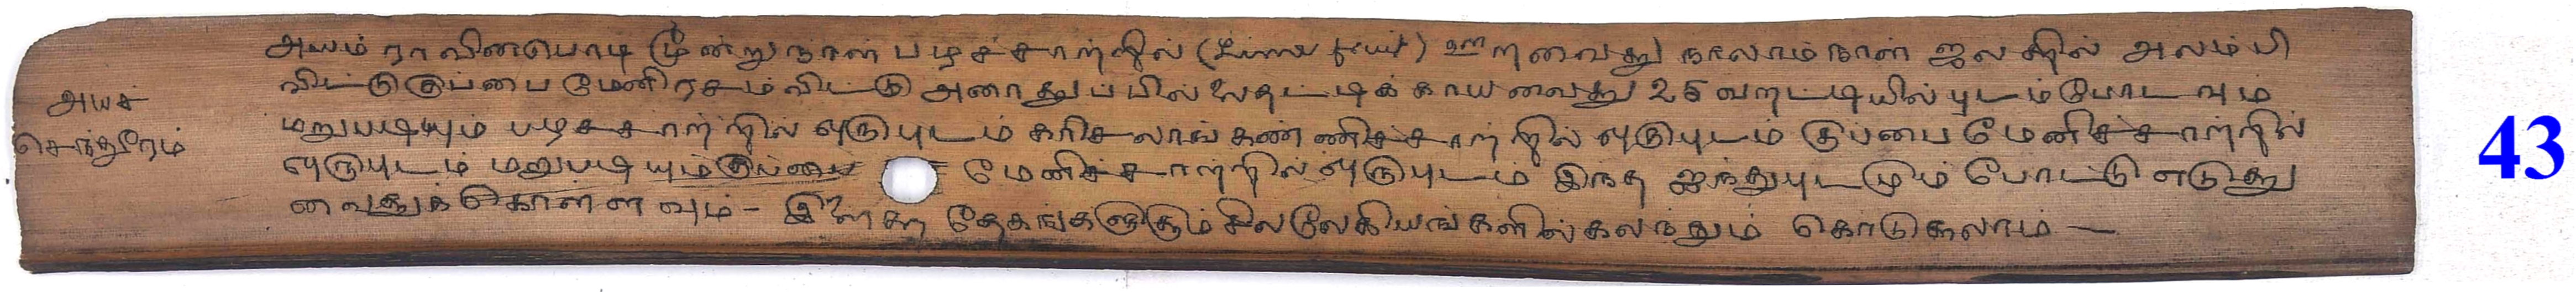 அயச்
செந்தூரம்
அயம் ராவினபொடி மூன்று நாள் பழச்சாற்றில் ( ) ஊறவைத்து நாலாம் நாள் ஜலத்தில் அலம்பி
விட்டு குப்பைமேனி ரசம் விட்டு அரைத்து வில்லைதட்டிக் காயவைத்து 25 வரட்டியில் புடம் போடவும்
மறுபடியும் பழச்சாற்றில் ஒருபுடம் கரிசலாங்கண்ணிச்சாற்றில் ஒருபுடம் குப்பைமேனிச்சாற்றில்
ஒருபுடம் மறுபடியும் குப்பை மேனிச்சாற்றில் ஒருபுடம் இந்த ஐந்துபுடமும் போட்டு எடுத்து
வைத்துக்கொள்ளவும் - தேகங்களுக்கும் சில லேகியங்களில் கலந்தும் கொடுக்கலாம் —
43